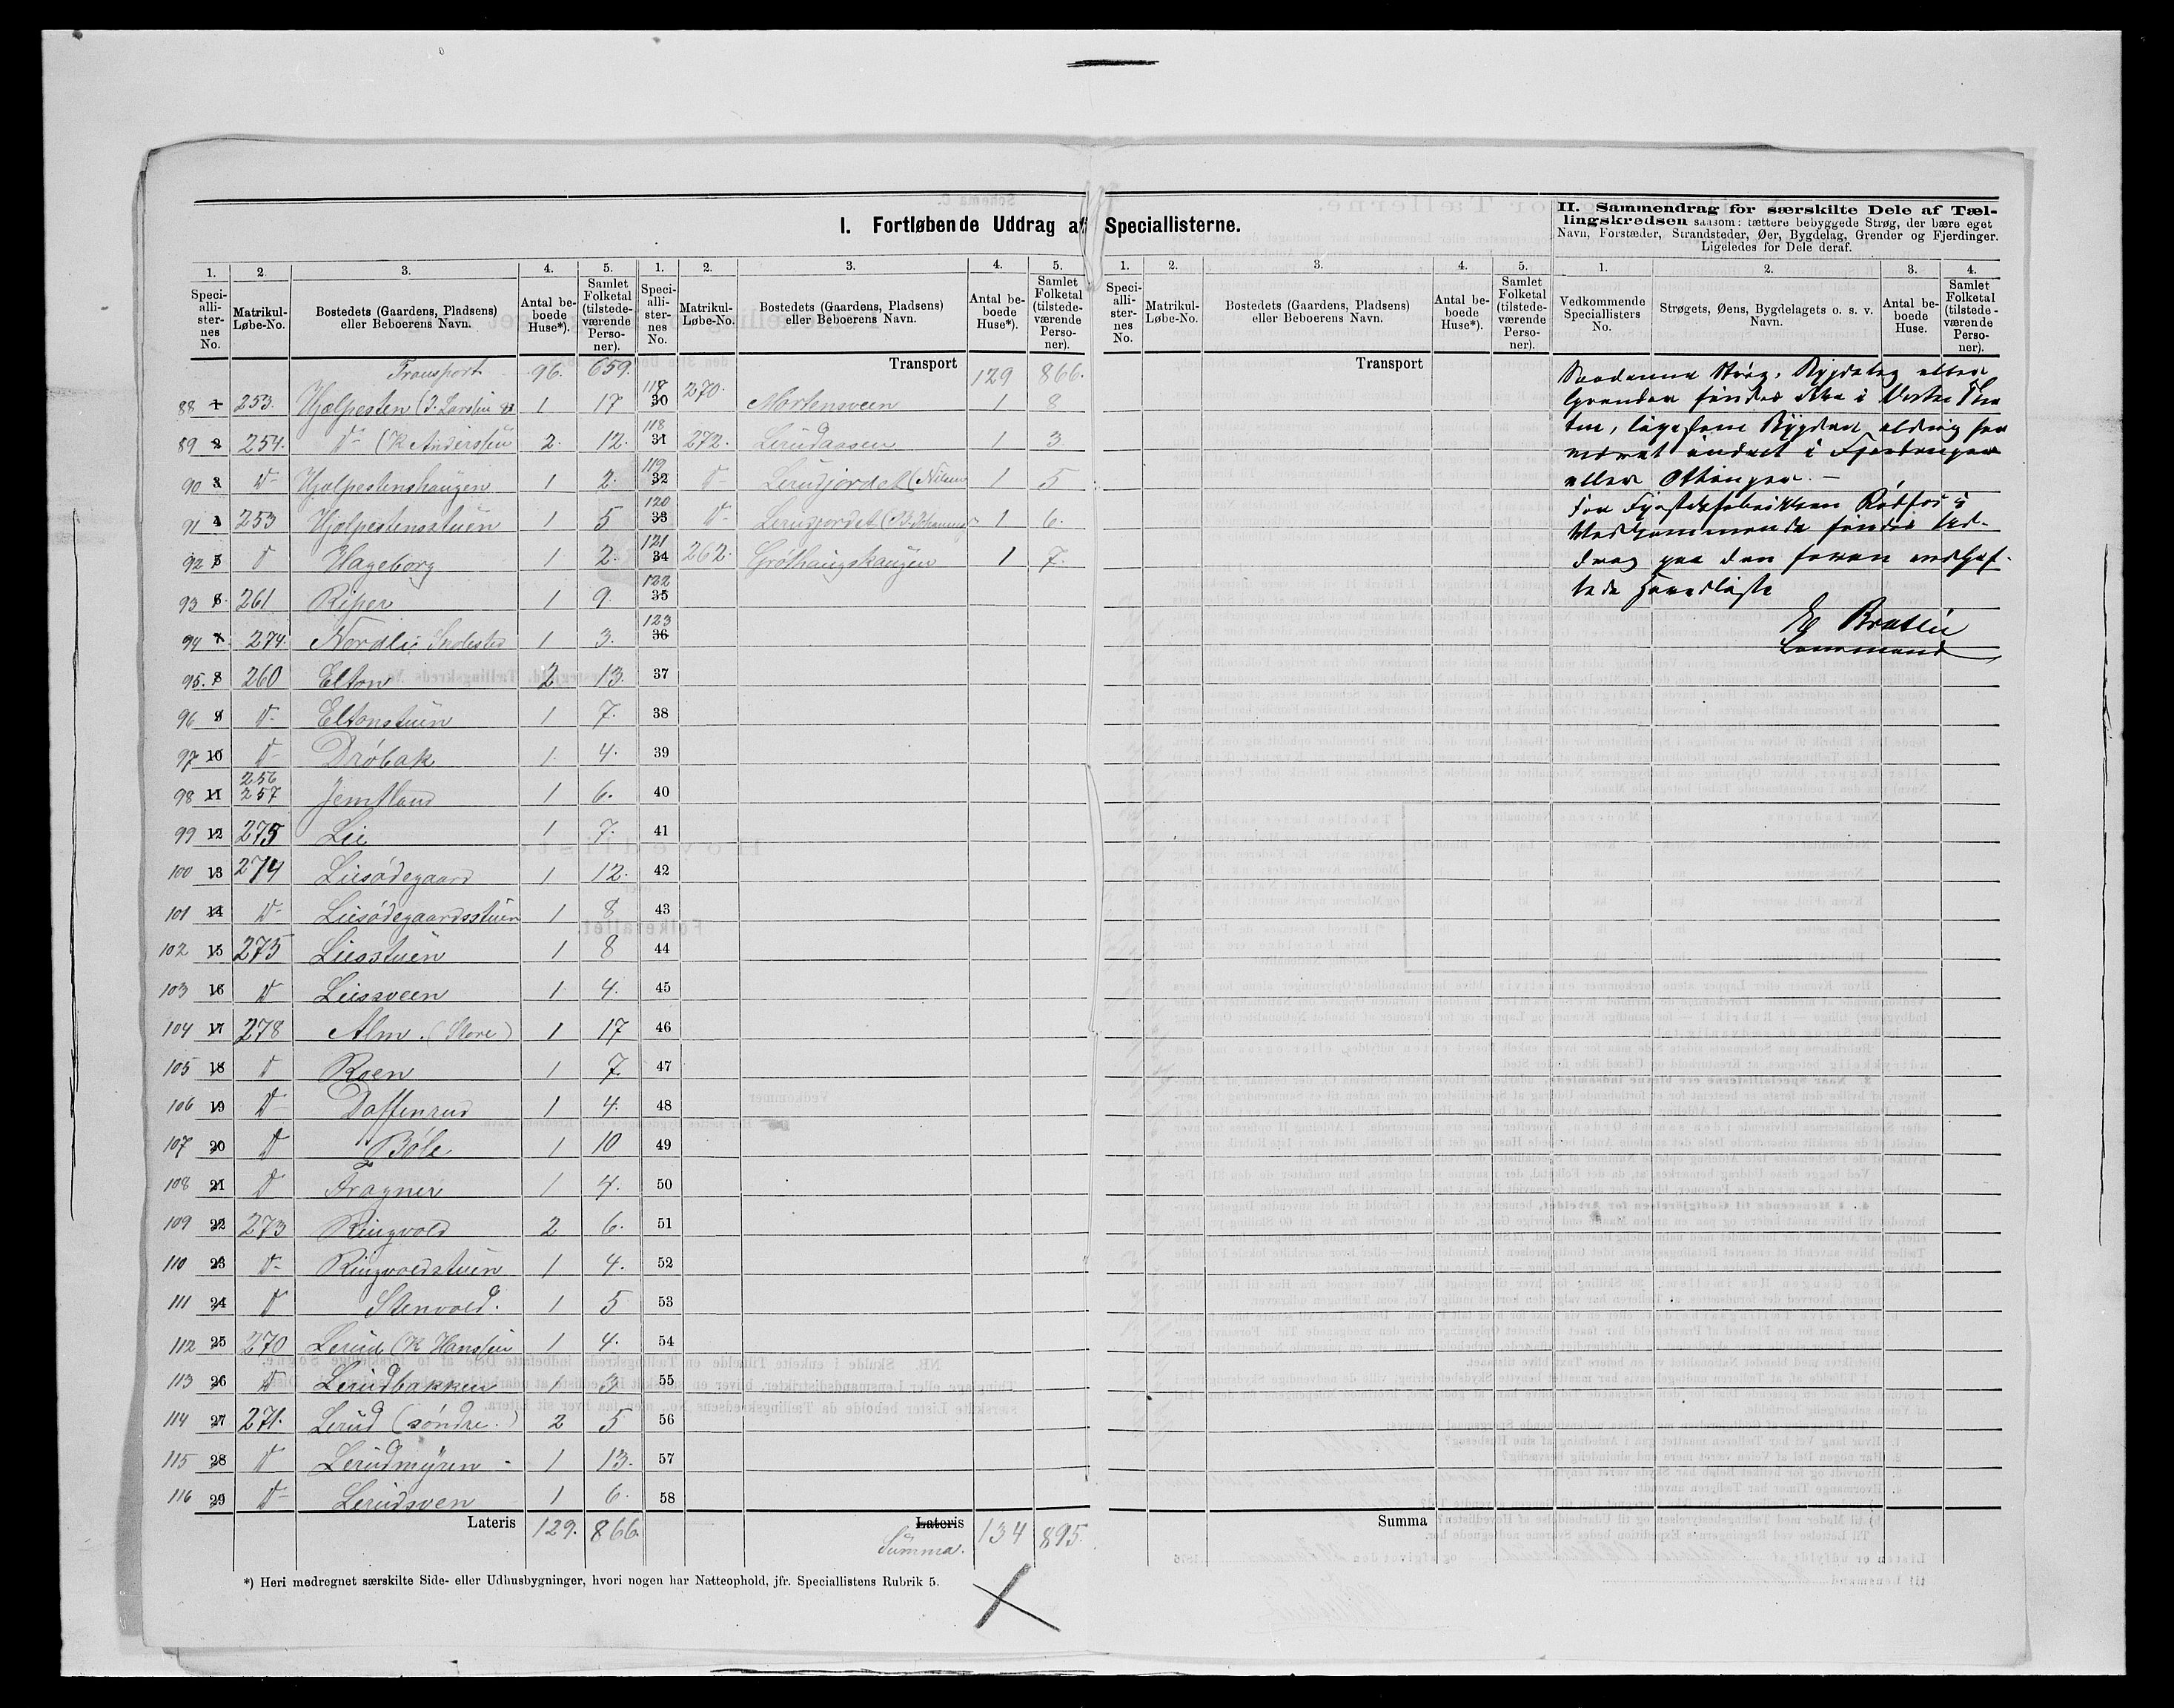 I. Fortløbende Uddrag af Speciallisterne.
II. Sammendrag for særskilte Dele af Tæl-
lingskredsen saasom: tættere bebyggede Strøg, der bære eget
Navn, Forstæder, Strandsteder, Øer, Bygdelag, Grender og Fjerdinger.
Ligeledes for Dele deraf.
1. 2. 3. 4. 5. 1. 2. 3. 4. 5. 1. 2. 3. 4. 5. 1. 2. 3. 4.
Speciallisternes No. Matrikul-Løbe-No. Bostedets (Gaardens, Pladsens) eller Beboerens Navn. Antal beboede Huse*). Samlet Folketal (tilstedeværende Personer).
Speciallisternes No. Matrikul-Løbe-No. Bostedets (Gaardens, Pladsens) eller Beboerens Navn. Antal beboede Huse*). Samlet Folketal (tilstedeværende Personer).
Speciallisternes No. Matrikul-Løbe-No. Bostedets (Gaardens, Pladsens) eller Beboerens Navn. Antal beboede Huse*). Samlet Folketal (tilstedeværende Personer).
Vedkommende Speciallisters No. Strøgets, Øens, Bygdelagets o. s. v. Navn. Antal beboede Huse. Samlet Folketal (tilstedeværende Personer).
Transport 96. 659.
88 1 253. Hjælpesten (J. Larsen 1 17
89 2 254. D- (K Anderssen 2. 12.
90 3 D- Hjælpestenshaugen 1 2.
91 4 253 Hjelpestensstuen 1 5
92 5 D Hageborg 1 2.
93 6 261 Riper 1 9.
94 7 274. Nordlie 1 3.
95. 8 260 Elton 2 13.
96 9 D- Eltonstuen 1 7.
97 10 D- Drøbak 1. 4.
98 11 256 257 Jemtland 1 6.
99 12 275 Lie 1 7.
100 13 274 Liesødegaard 1 12.
101 14 D- Liesødegaardsstuen 1 8
102 15 275 Liesstuen 1 8
103 16 D Liessveen 1 4.
104 17 278 Alm. (Store) 1 17
105 18 D Roen 1 7.
106 19 D- Doffenrud 1 4.
107 20 D Bøle 1 10
108 21 D Frogner 1 4.
109 22 273 Ringvold 2 6.
110 23 D- Ringvoldstuen 1 4.
111 24 D Stenvold. 1 5
112 25 270 Lerud (K Hanssen 1 4.
113 26 D Lerudbakken 1 3
114 27 271. Lerud (søndre.) 2 5
115 28 D Lerudmyren - 1 13.
116 29 D- Lerudsven 1 6.
Lateris 129. 866.
Transport 129 866.
117 30 270. Mortensveen 1 8
118 31 272. Lerudaasen 1 3
119 32 D- Lerudjordet (Nilsen 1 5
120 33 D- Lerudjordet 1 6.
121 34 262. Grøthaugshaugen 1 7.
122 35
123 36
37
38
39
40
41
42
43
44
45
46
47
48
49
50
51
52
53
54
55
56
57
58
Lateris
Summa. 134 895.
Transport
Summa
Saadanne Strøg, Bygdelag eller
Grender findes ikke i Vestre
ten, ligesom Bygden aldrig har
været inddelt i Fjerdinger
eller Ottinger. -
For
Vedkommende findes Ud-
drag paa den foran indhef-
tede Hovedliste
E Braten
Lensmand
*) Heri medregnet særskilte Side- eller Udhusbygninger, hvori nogen har Natteophold, jfr. Speciallistens Rubrik 5.